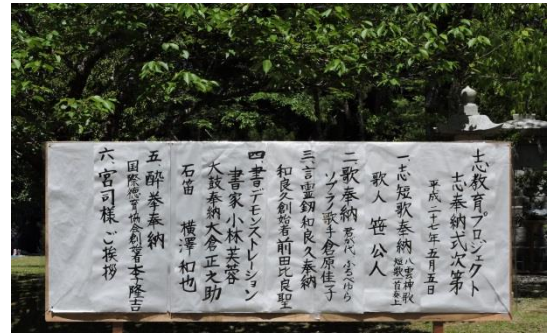 志教育プロジェクト
志奉納式次第
平成二十七年五月五日
一.志短歌奉納 八雲神歌 短歌一首奏上
歌人 笹 公人
二.歌奉納 君が代、ふるさと、ゆら
ソプラノ歌手倉原佳子
三.言霊釼和良久奉納
和良久創始者前田比良聖
四.書デモンストレーション
書家 小林芙蓉
大鼓奉納大倉正之助
石笛 横澤和也
五.酔拳奉納
国際徳育協会創着李隆吉
六.宮司様ご挨拶